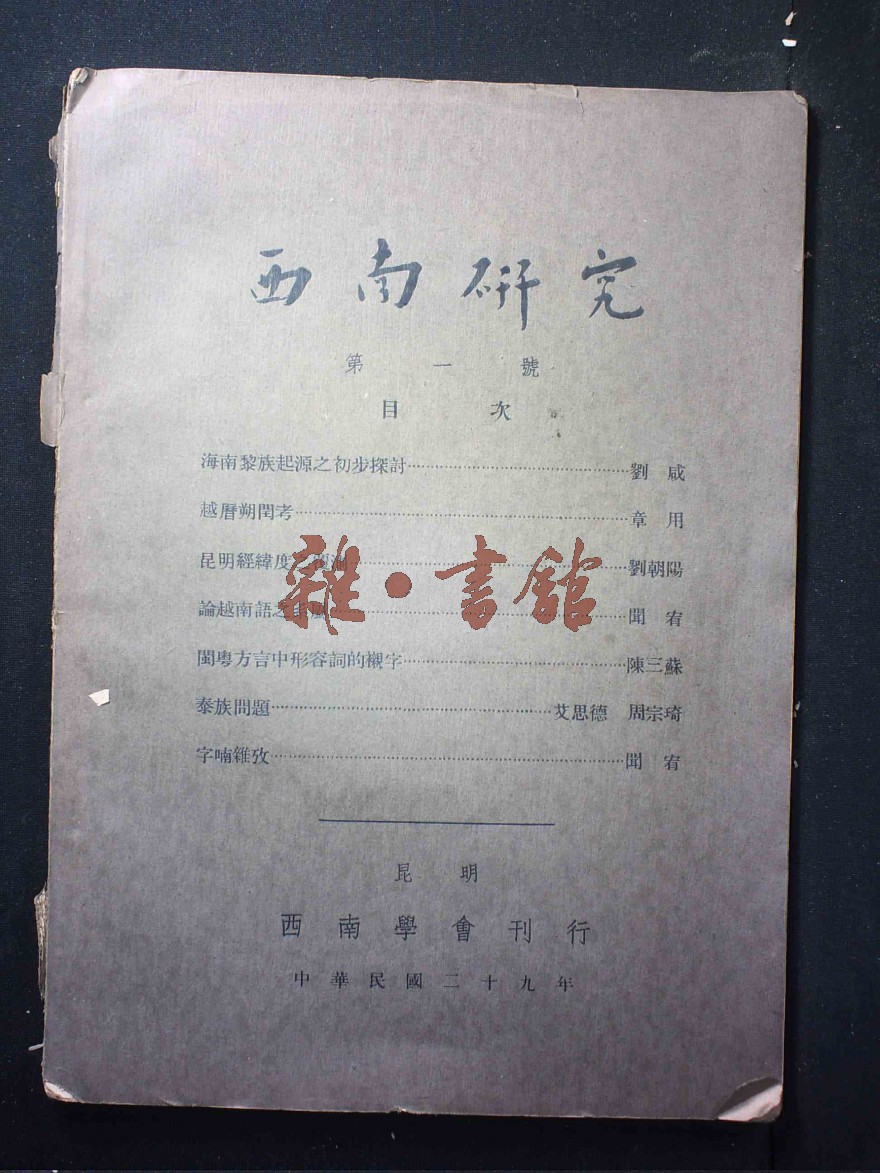 西南研究
第一號
目次
海南黎族起源之初步探討……劉咸
越曆朔閏考……章用
昆明經緯度……劉朝陽
論越南語之……聞宥
閩粵方言中形容詞的襯字……陳三蘇
泰族問題……艾思德 周宗琦
字喃雜攷……聞宥
雜·書館
昆明
西南學會刊行
中華民國二十九年